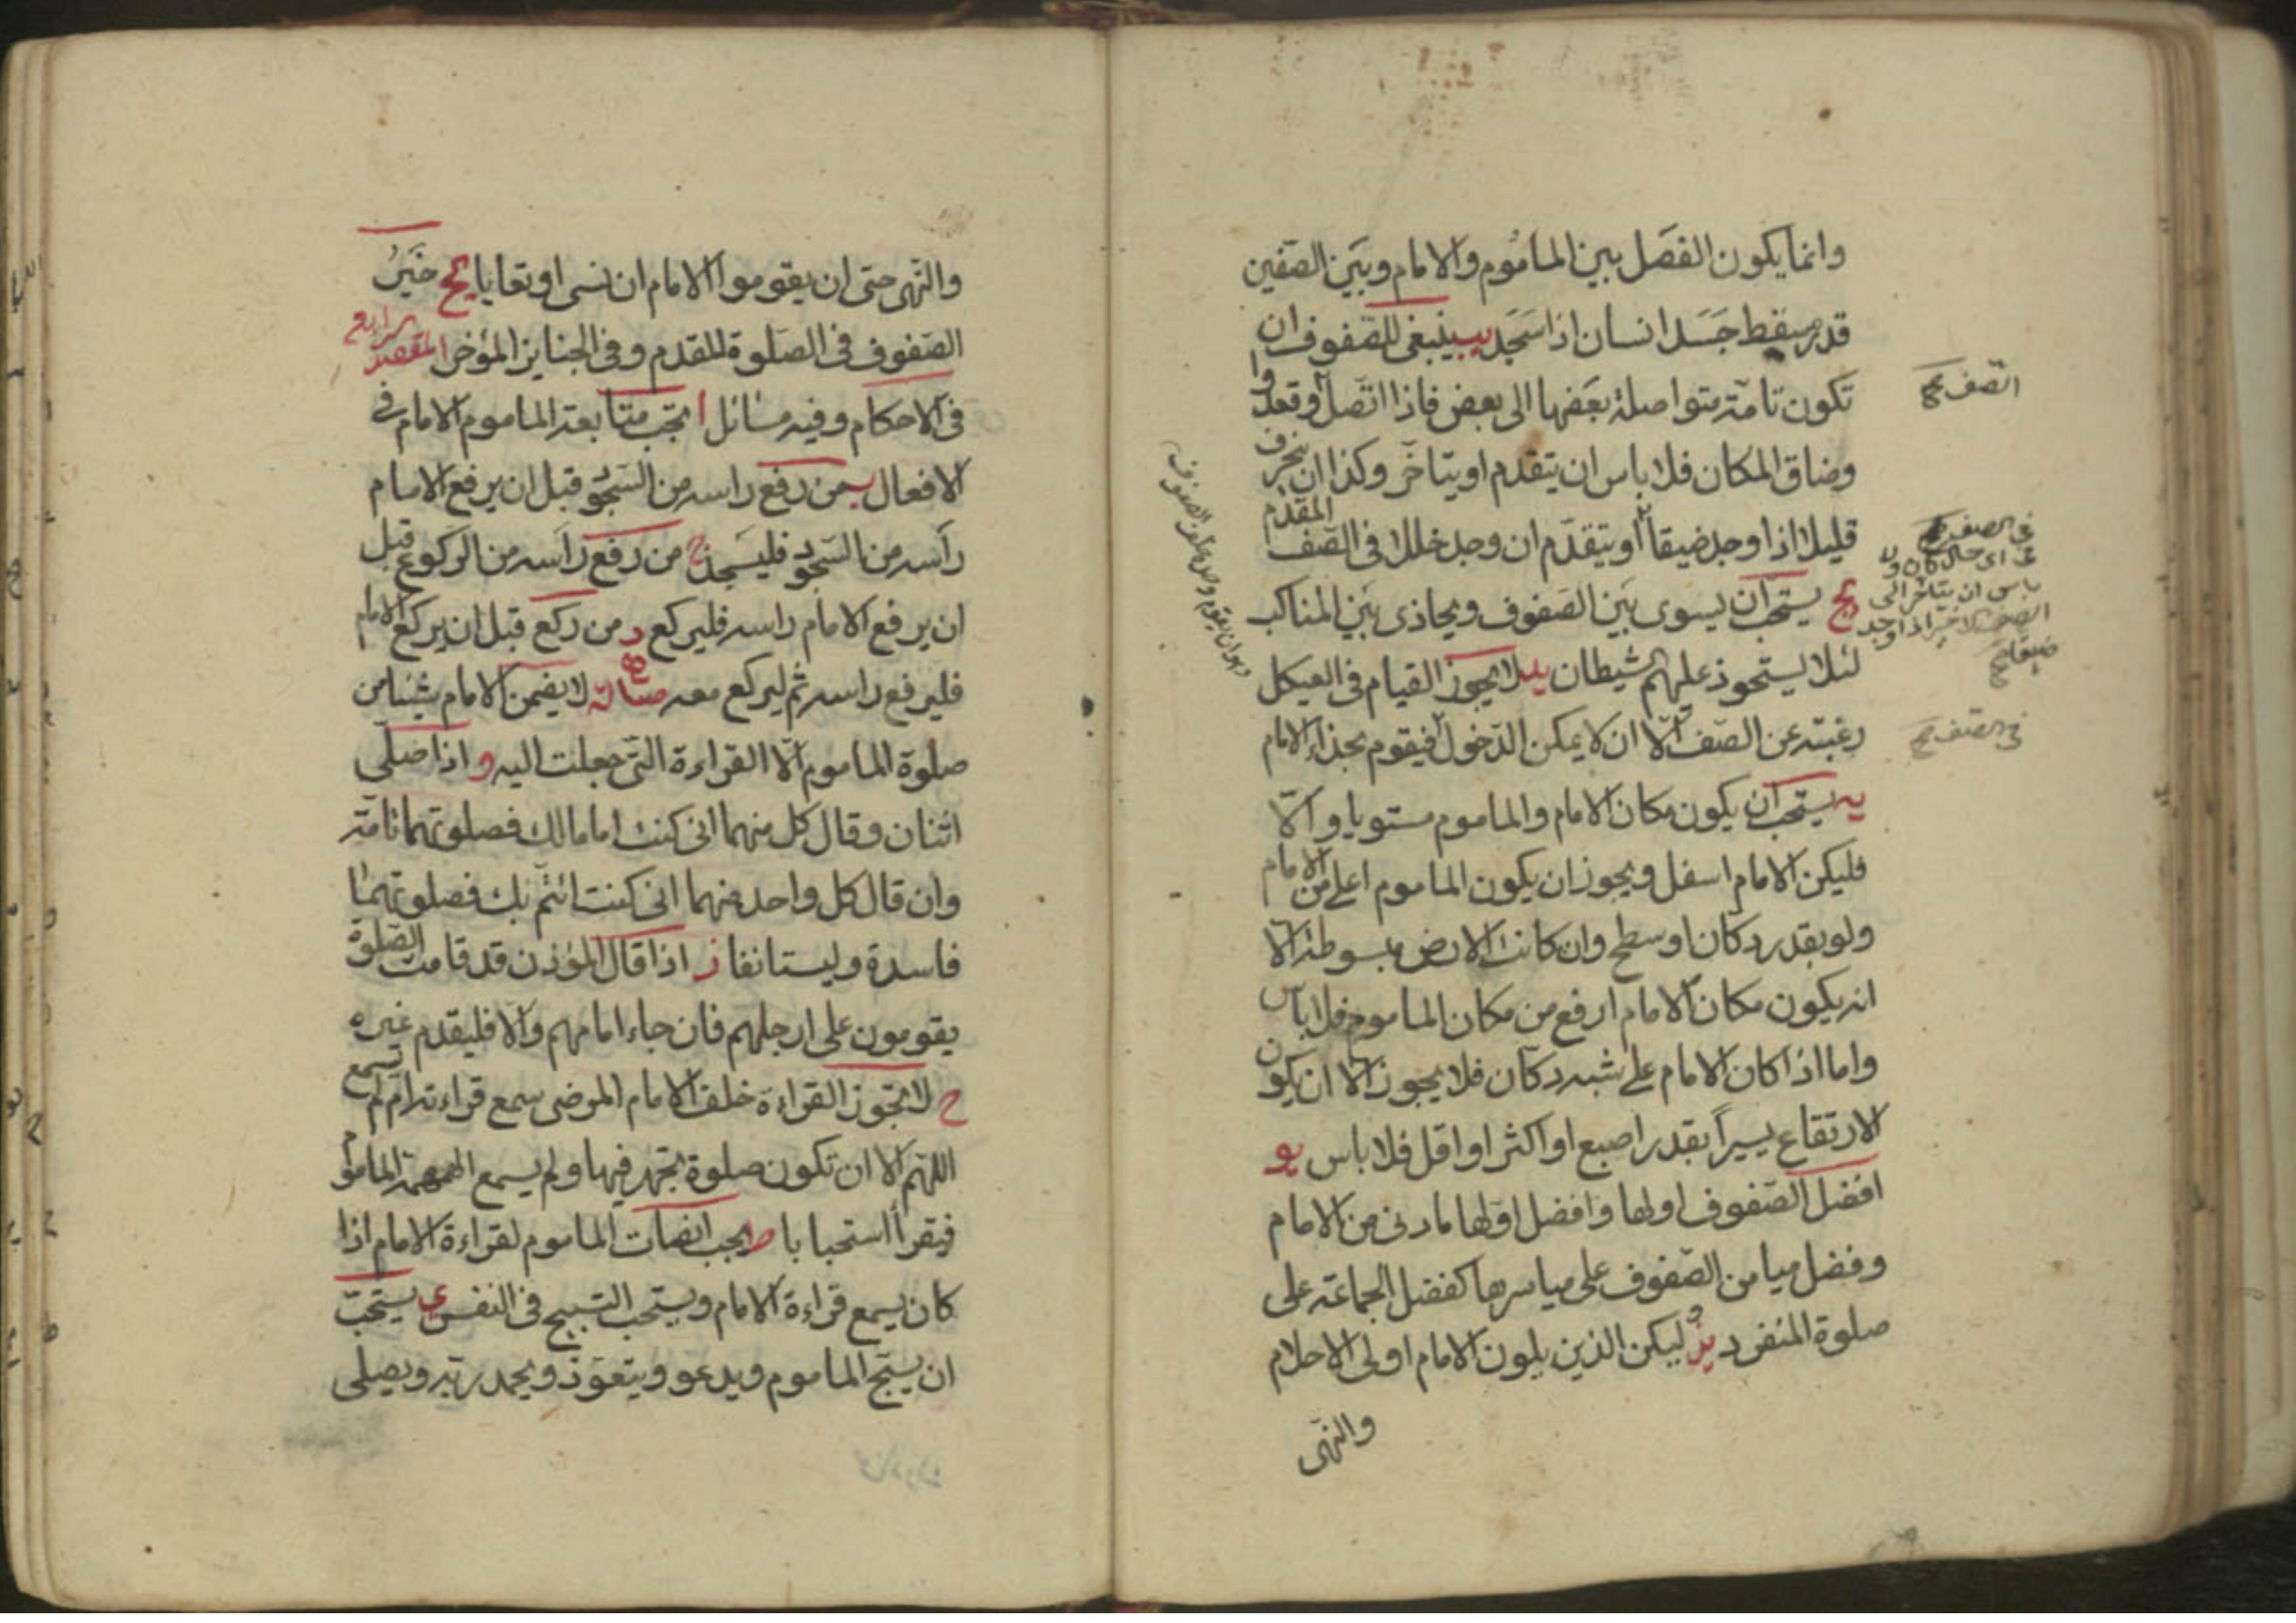 وانما يكون الفصل بين الماموم والامام وبين الصفين
قدر مسقط جسد انسان اذا سجد يب ينبغي للصفوف ان
تكون تامة متواصلة بعضها الى بعض فاذا اتصل وقعدوا
وضاق المكان فلا باس ان يتقدم او يتاخر وكذا ان ينحرف
قليلا اذا وجد ضيقا او يتقدم ان وجد خللا في الصف المقدم
يج يستحب ان يسوى بين الصفوف ويحاذى بين المناكب
لئلا يستحوذ عليهم الشيطان يد لا يجوز القيام في العيكل
رغبة عن الصف الا ان لا يمكن الدخول فيقوم بحذاء الامام
يه يستحب ان يكون مكان الامام والماموم مستويا والا
فليكن الامام اسفل ويجوز ان يكون الماموم اعلى من الامام
ولو بقدر دكان او سطح وان كانت الارض مبسوطة الا
انه يكون مكان الامام ارفع من مكان الماموم فلا باس
واما اذا كان الامام على شبه دكان فلا يجوز الا ان يكون
الارتفاع يسيرا بقدر اصبع او اكثر او اقل فلا باس يو
افضل الصفوف اولها وافضل اولها ما دنى من الامام
وفضل ميامن الصفوف على مياسرها كفضل الجماعة على
صلوة المنفرد يز ليكن الذين يلون الامام اولى الاحلام
والنهى
الصف
في الصف
على اى حال كان ولا
باس ان يتاخر الى
الصف الاخير اذا وجد
ضيقا
في الصف
والنهى حتى ان يقوموا الامام ان نسى او تعايا يح خير
الصفوف في الصلوة المقدم وفي الجنايز المؤخر المقصد الرابع
في الاحكام وفيه مسائل ا يجب متابعة الماموم الامام في
الافعال ب من رفع راسه من السجود قبل ان يرفع الامام
راسه من السجود فليسجد ج من رفع راسه من الركوع قبل
ان يرفع الامام راسه فليركع د من ركع قبل ان يركع الامام
فليرفع راسه ثم ليركع معه ه مسالة لا يضمن الامام شيئا من
صلوة الماموم الا القراءة التى جعلت اليه و اذا صلى
اثنان وقال كل منهما انى كنت اماما لك فصلوتهما تامة
وان قال كل واحد منهما انى كنت ائتم بك فصلوتهما
فاسدة وليستانفا ز اذا قال المؤذن قد قامت الصلوة
يقومون على ارجلهم فان جاء امامهم والا فليقدم غيره
ح لا تجوز القراءة خلف الامام المرضى سمع قراءته ام لم تسمع
اللهم الا ان تكون صلوة يجهر فيها ولم يسمع الهمهمة الماموم
فيقرا استحبابا ط يجب انصات الماموم لقراءة الامام اذا
كان يسمع قراءة الامام ويستحب التسبيح في النفس ى يستحب
ان يسبح الماموم ويدعو ويتعوذ ويحمد ربه ويصلى